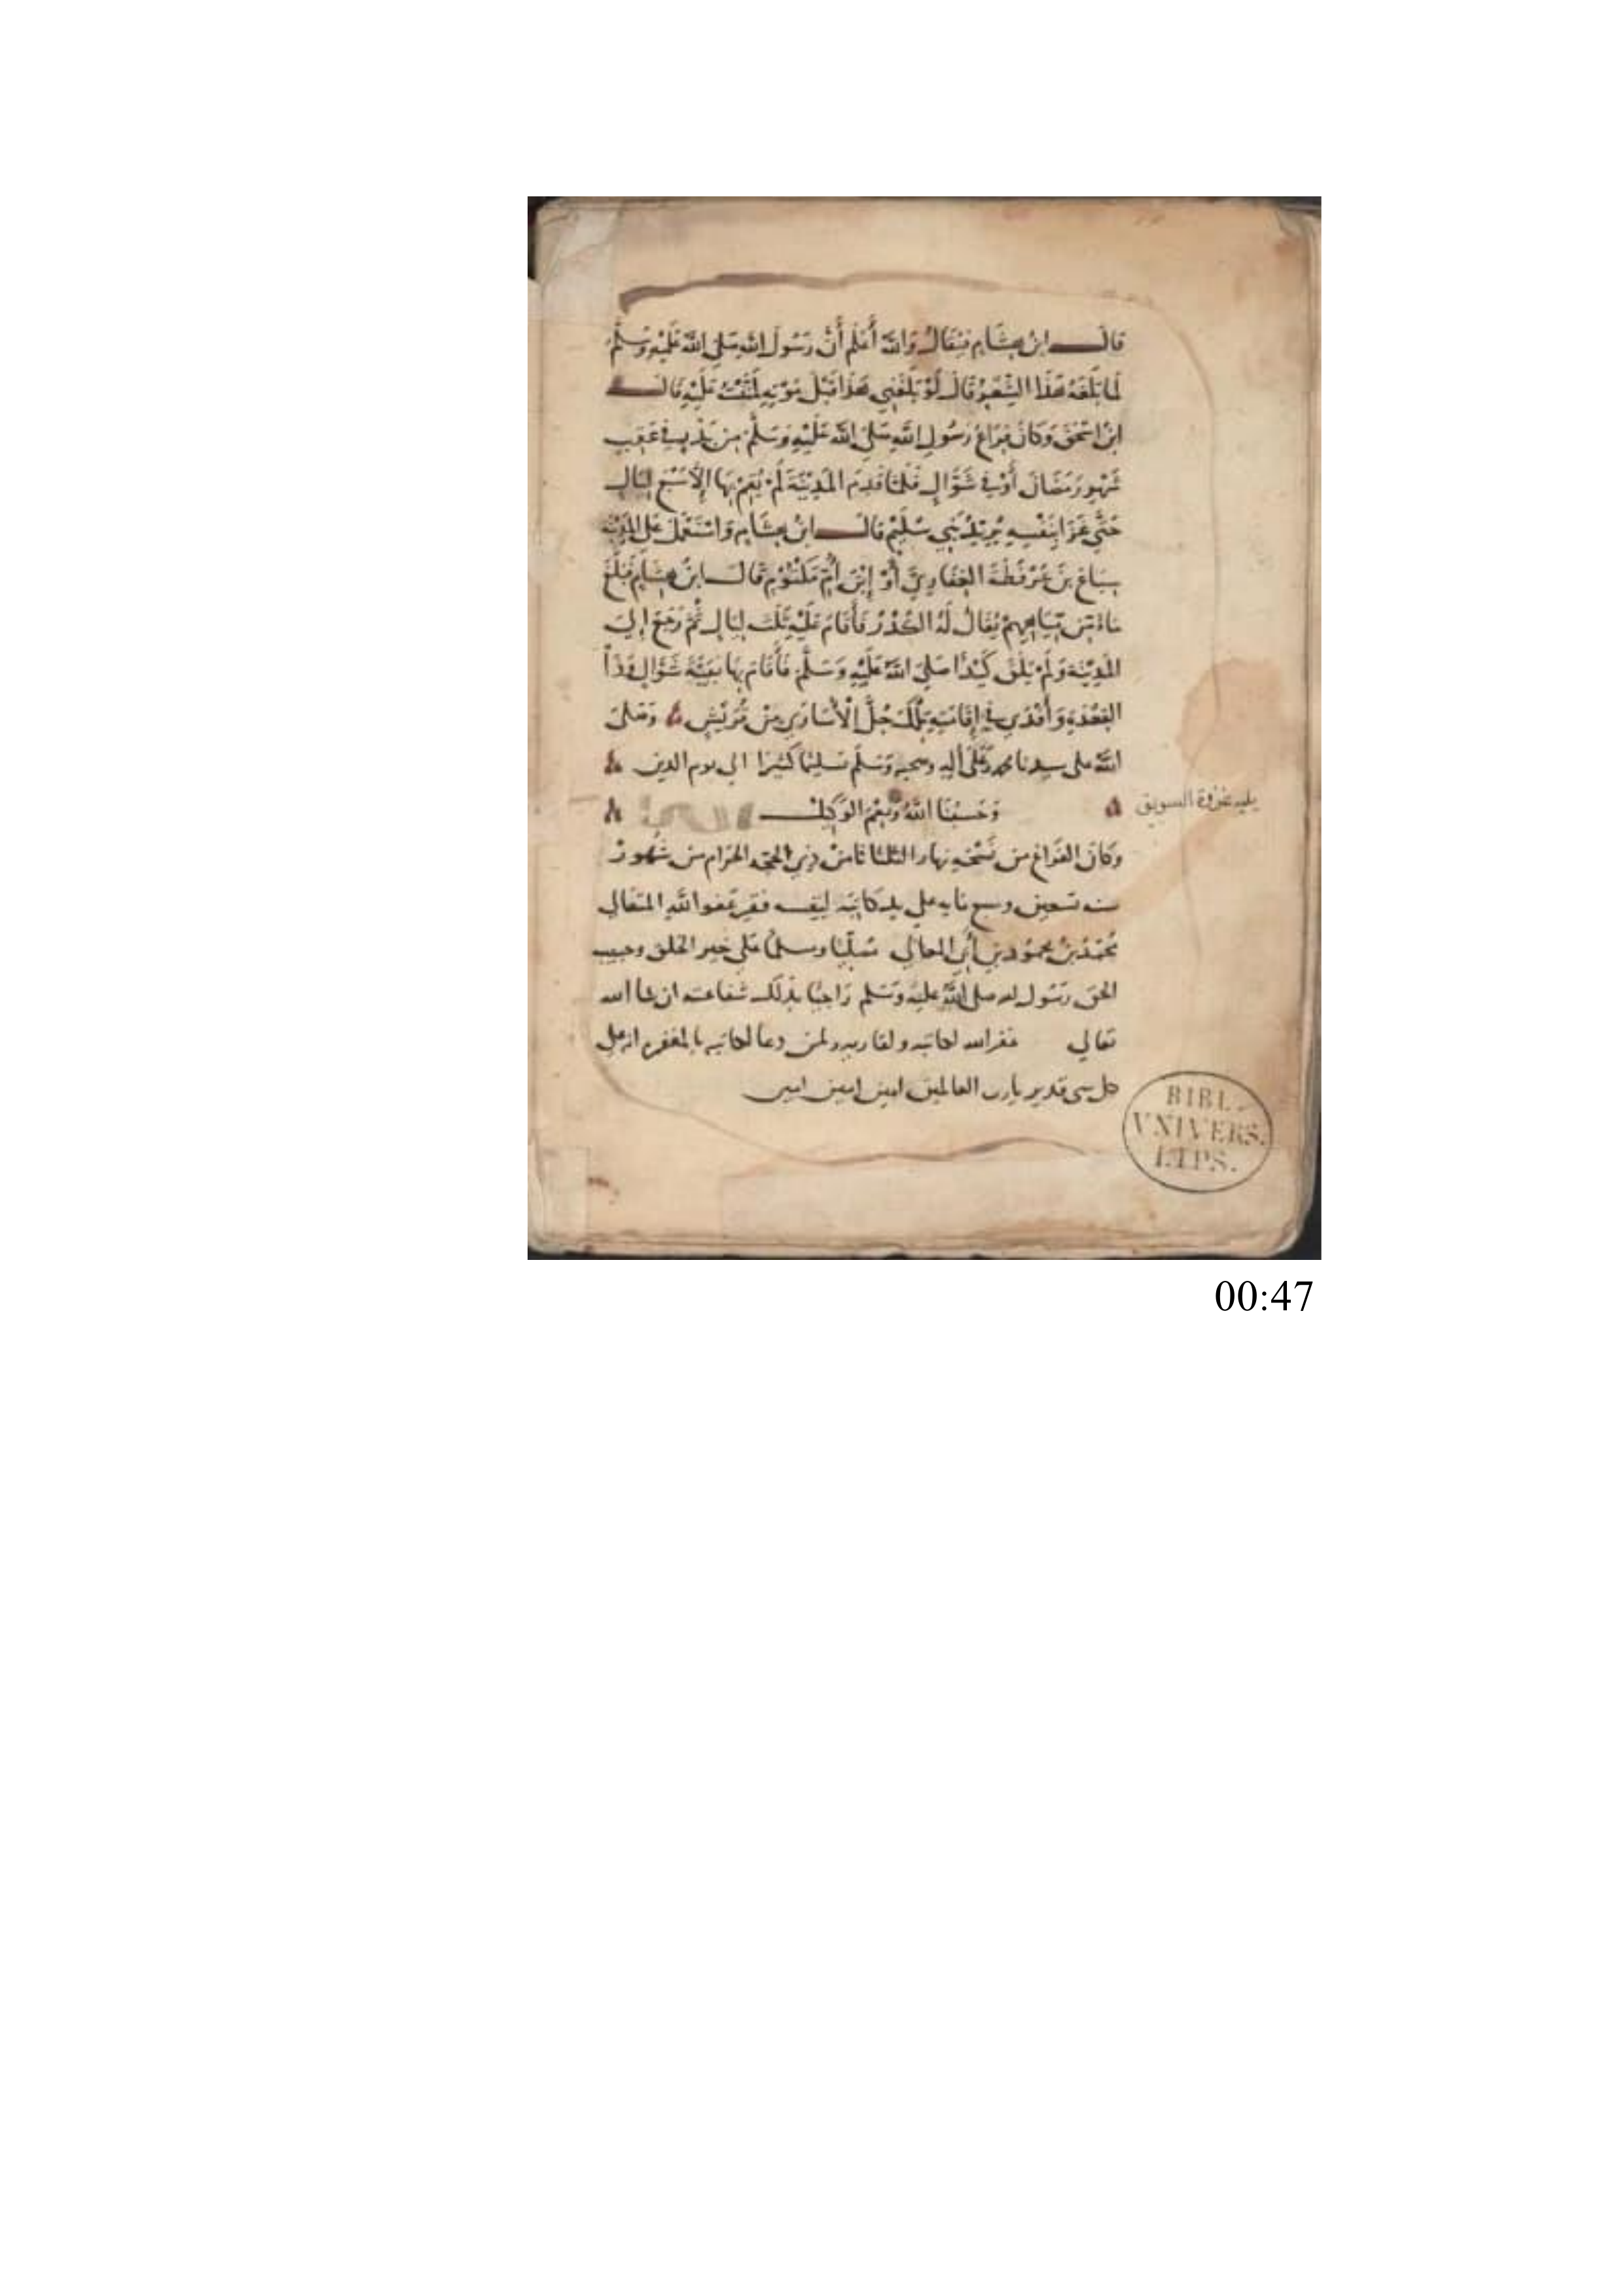 قال ابن هشام فيقال والله أعلم أن رسول الله صلى الله عليه وسلم
لما بلغه هذا الشعر قال لو بلغني هذا قبل موته لمننت عليه قال
ابن اسحق وكان فراغ رسول الله صلى الله عليه وسلم من بدر في عقب
شهر رمضان أو في شوال فلما قدم المدينة لم يقم بها إلا سبع ليال
حتى غزا بنفسه يريد بني سليم قال ابن هشام واستعمل على المدينة
سباع بن عرفطة الغفاري أو إبن أم مكتوم قال ابن هشام فبلغ
ماء من مياههم يقال له الكدر فأقام عليه ثلث ليال ثم رجع إلى
المدينة ولم يلق كيدا صلى الله عليه وسلم فأقام بها بقية شوال وذا
القعدة وأفدى في إقامته تلك جل الأسارى من قريش وصلى
الله على سيدنا محمد وعلى أله وصحبه وسلم تسليما كثيرا الى يوم الدين
وحسبنا الله ونعم الوكيل
يليه غزوة السويق
وكان الفراغ من نسخه نهار الثلثا ثامن ذي الحجة الحرام من شهور
سنه تسعين وسبع مايه على يد كاتبه لنفسه فقير عفو الله المتعالي
محمد بن محمود بن أبي المعالي مصليا ومسلما على خير الخلق وحبيب
الحق رسول الله صلى الله عليه وسلم راجيا بذلك شفاعته ان شا الله
تعالي غفر الله لكاتبه ولقاريه ولمن دعا لكاتبه بالمغفره انه على
كل شي قدير يارب العالمين امين امين امين
BIBL.
VNIVERS.
LIPS.
00:47